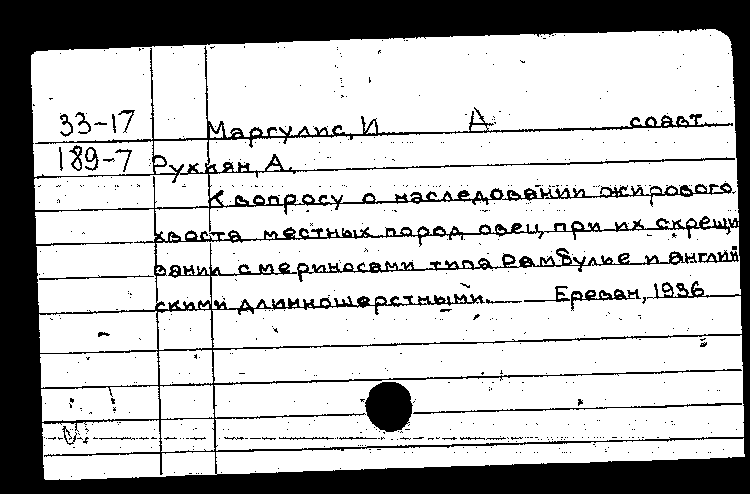 33-17 Маргулис, И А соавт.
189-7 Рухкян, А.
К вопросу о наследовании жирового
хвоста местных пород овец, при их скрещи
вании с мериносами типа Рамбулье и англий
скими длинношерстными. Ереван, 1936